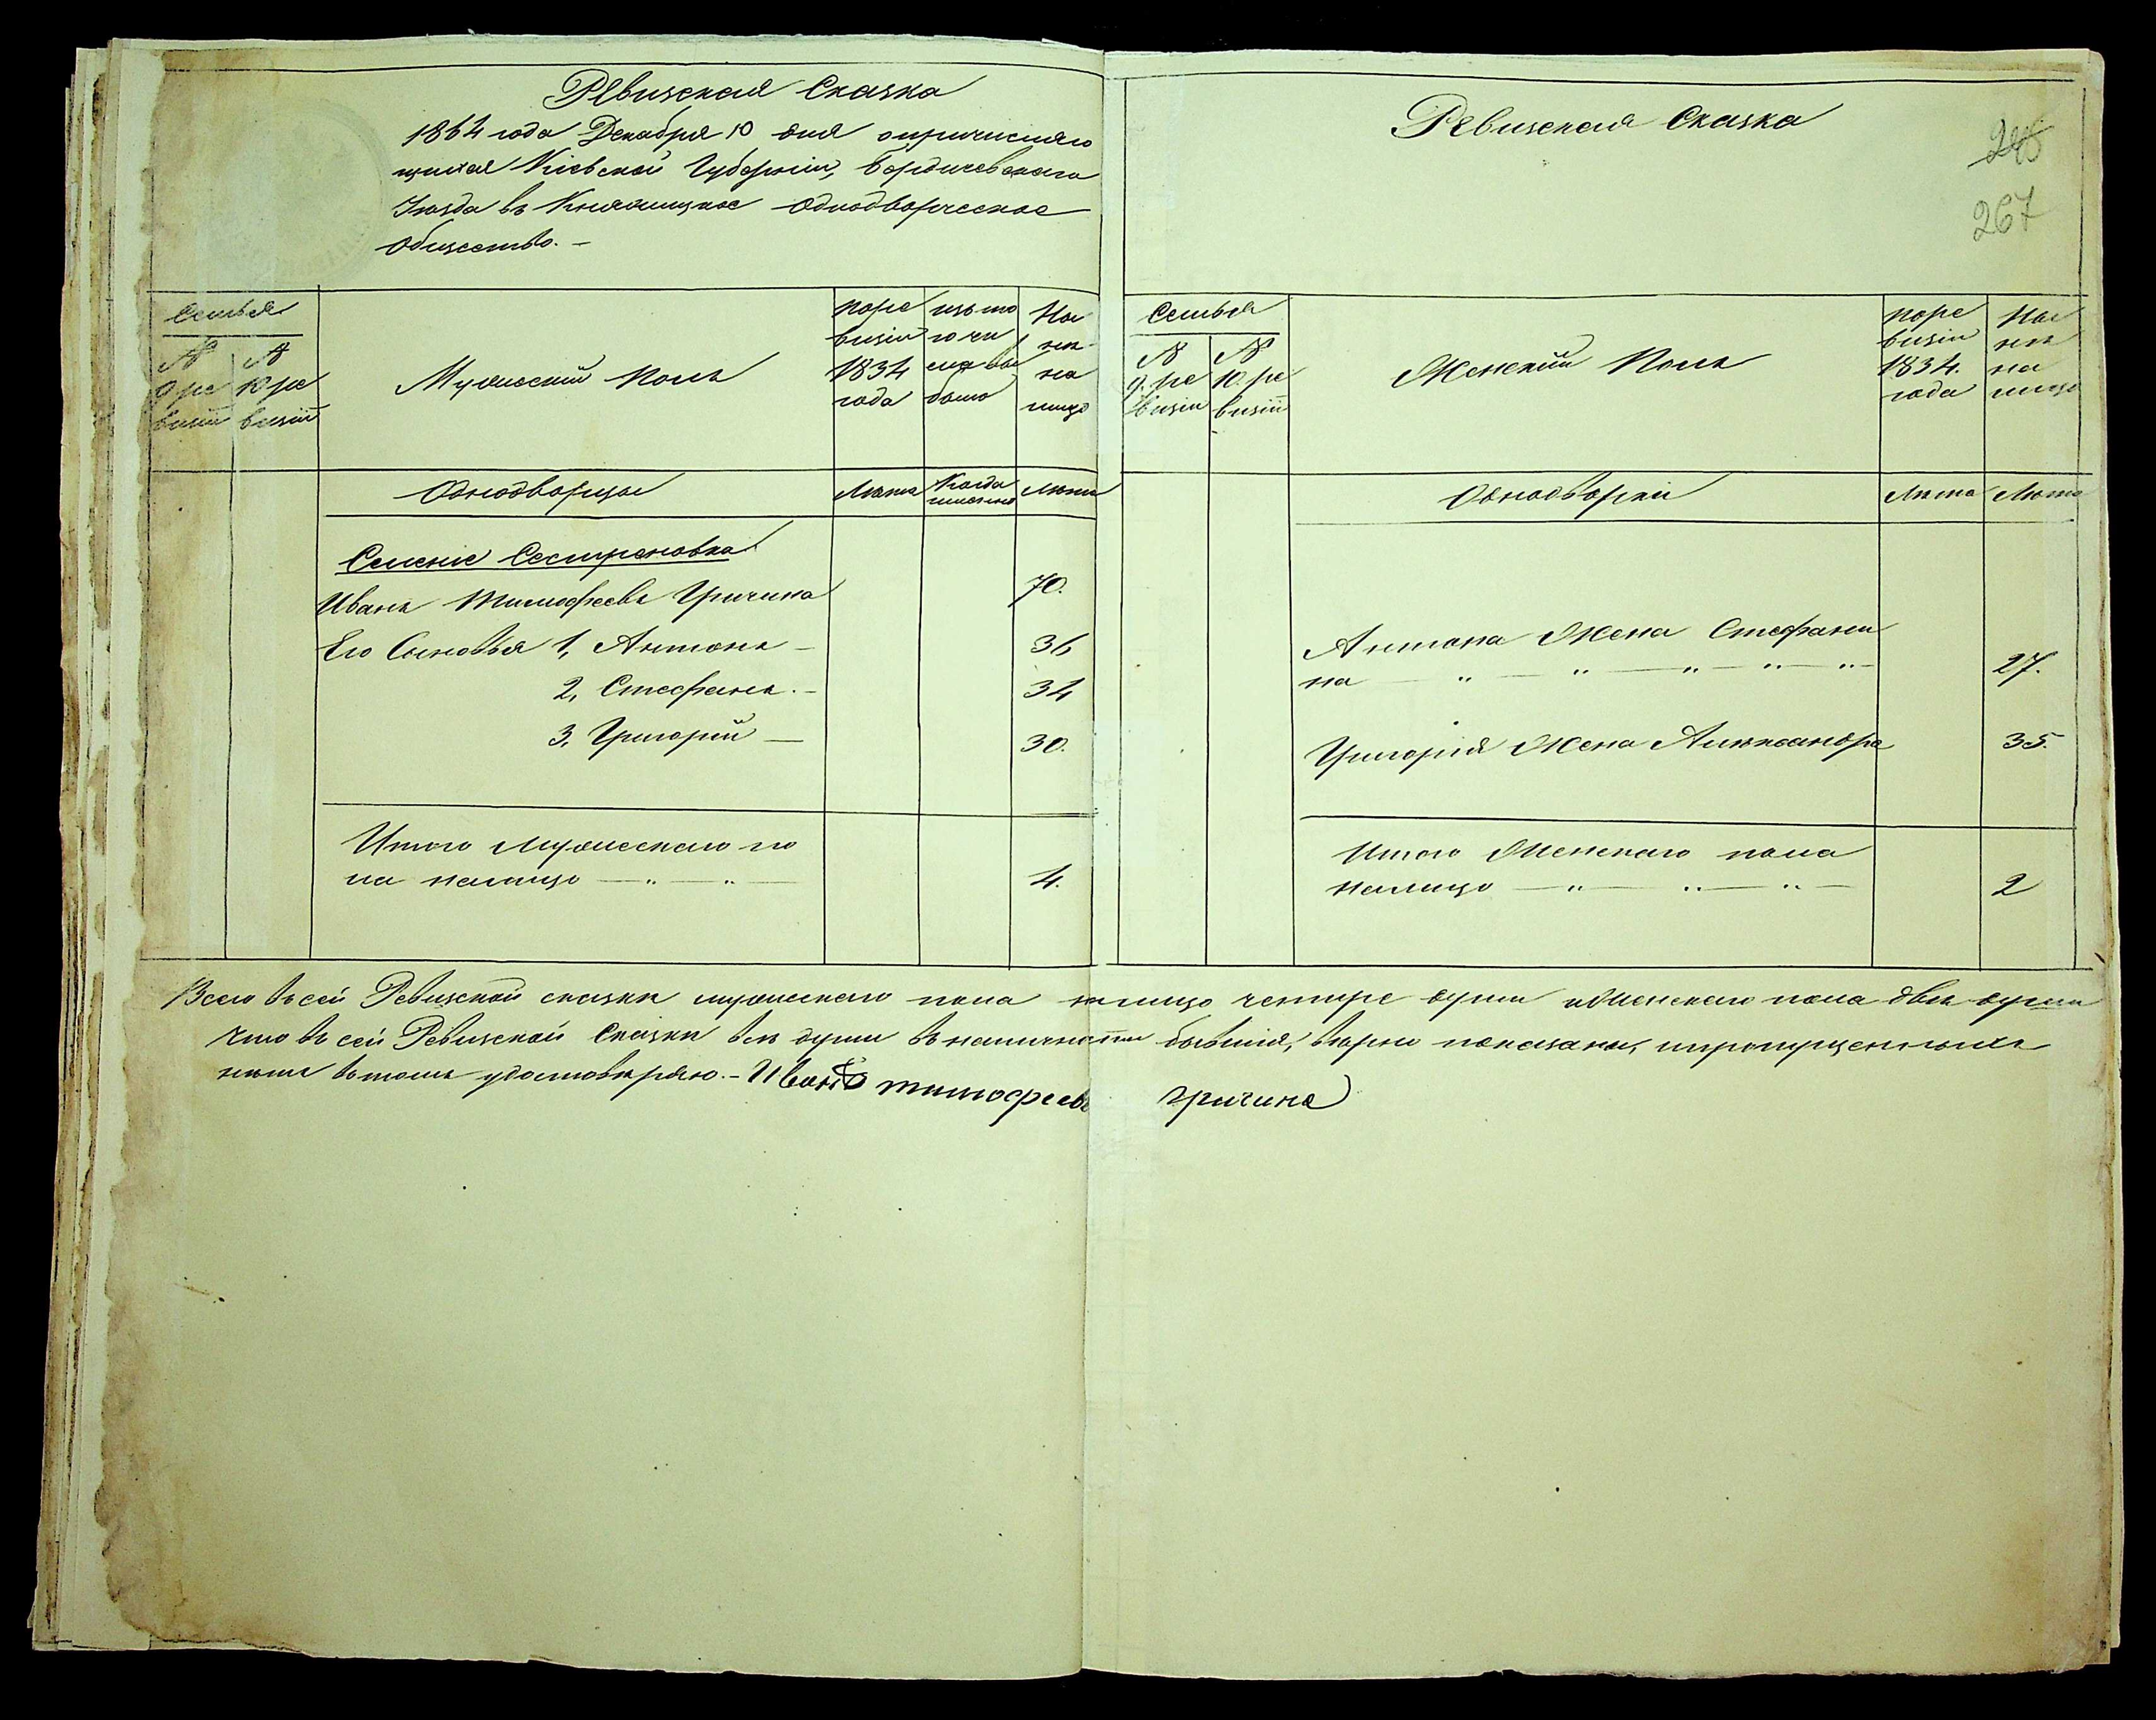 Ревизская Сказка
1864 года Декабря 10 дня о причисляю
щихся Кіевской Губерніи, Бердичевскаго
Уезда въ Княжицкое Однодворческое
Общество. –
Семья
№ 9 ре визіи
№ 10 ре визіи
Мужеский Полъ
По ре визіи 1834 года
изъ то го чи сла вы было
На ли на лицо
Однодворцы
Лѣта
Когда именно
Лѣта
Селеніе Сестреновка
Иванъ Тимофеевъ Гричина 70.
Его Сыновья 1, Антонъ – 36
2, Стефанъ. – 34
3, Григорій – 30.
Итого Мужескаго по
ла налицо – „ – „ – 4.
Ревизская Сказка
245
267
Семья
№ 9. ре визіи
№ 10. ре визіи
Женский Полъ
По ре визіи 1834. года
на лицо
Однодворки
Лѣта
Лѣта
Антона Жена Стефани
на – „ – „ – „ – „ – „ – 27.
Григорія Жена Александра 35.
Итого Женскаго пола
налицо – „ – „ – „ – 2
Всего въ сей Ревизской сказки мужескаго пола налицо четыре души и Женскаго пола двѣ души
Что въ сей Ревизской Сказки всѣ души въ наличности бывшія, вѣрно показаны, и пропущенныхъ
нѣтъ въ томъ удостовѣряю. – Иванъ Тимофеевъ Гричина